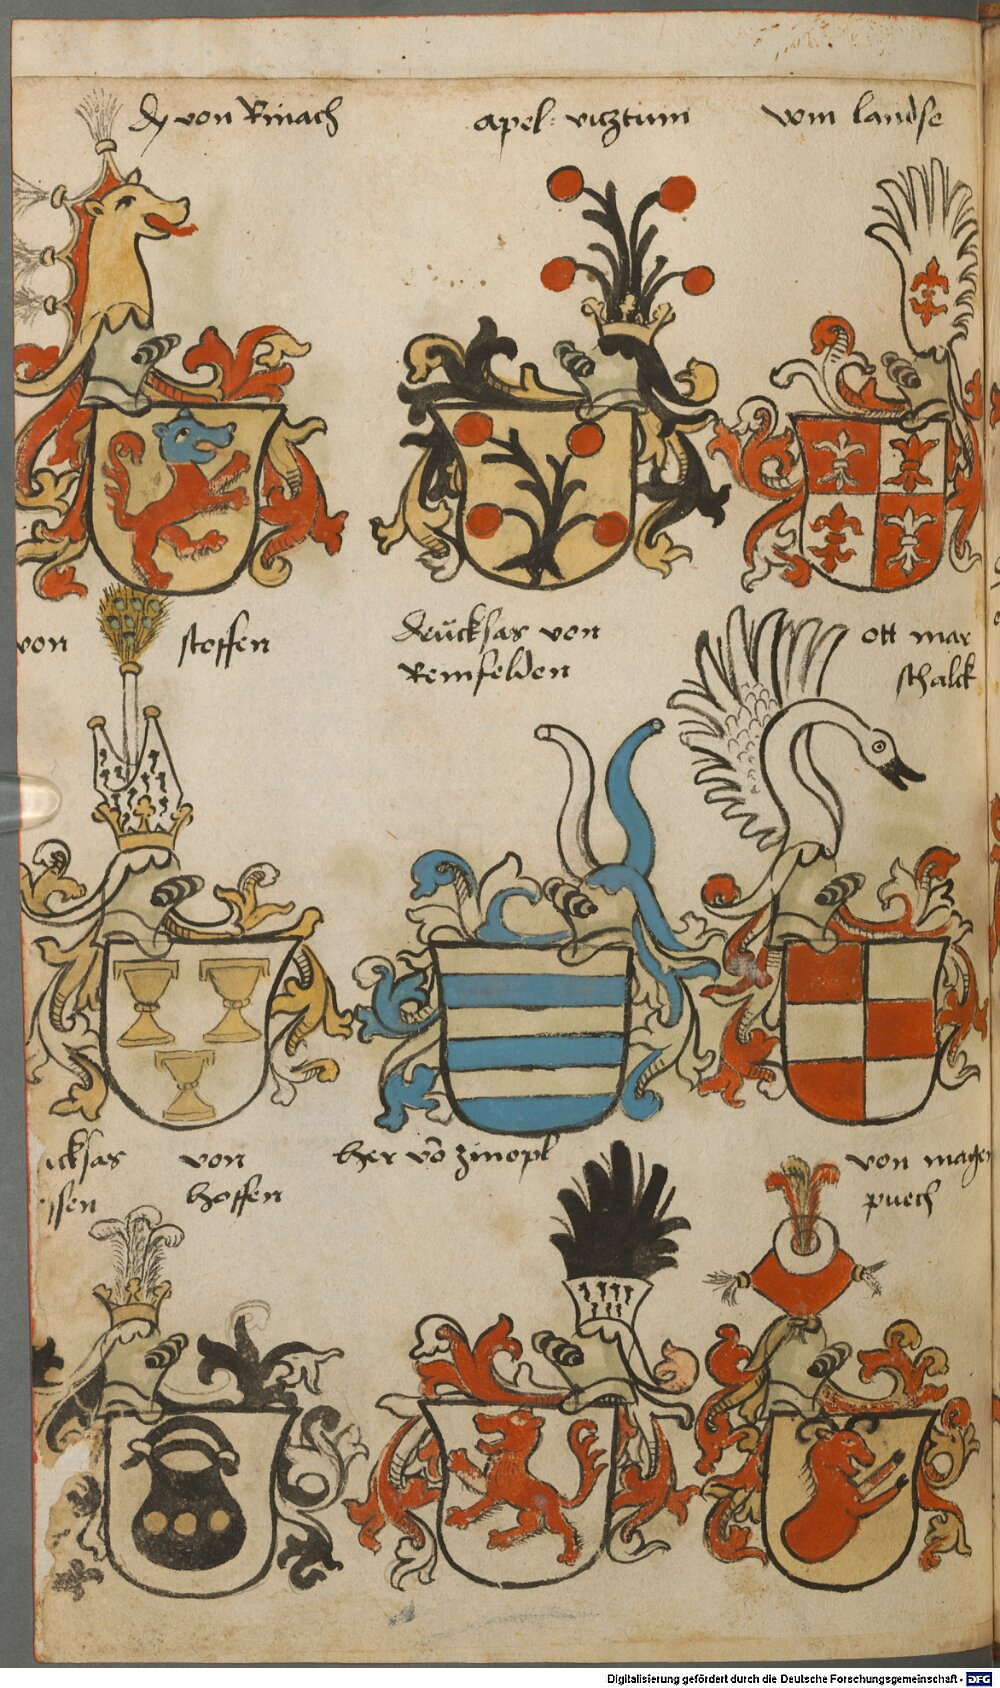 dy von Rinach
apel: viztum
vom landse
von stoffen
drucksas von
Reinfelden
ott mar
schalck
cksas von
ssen hoffen
her vo zinopl
von magen
puech
Digitalisierung gefördert durch die Deutsche Forschungsgemeinschaft - DFG